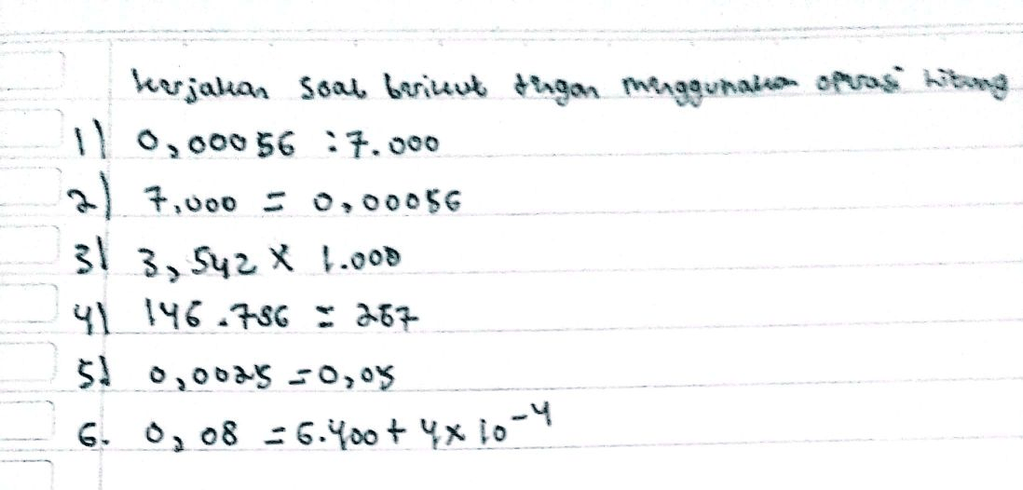 kerjakan soal berikut dengan menggunakan operasi hitung
1) 0,00056 : 7.000
2) 7.000 = 0,00056
3) 3,542 x 1.000
4) 146.786 = 267
5) 0,0025 = 0,05
6. 0,08 = 6.400 + 4 x 10⁻⁴